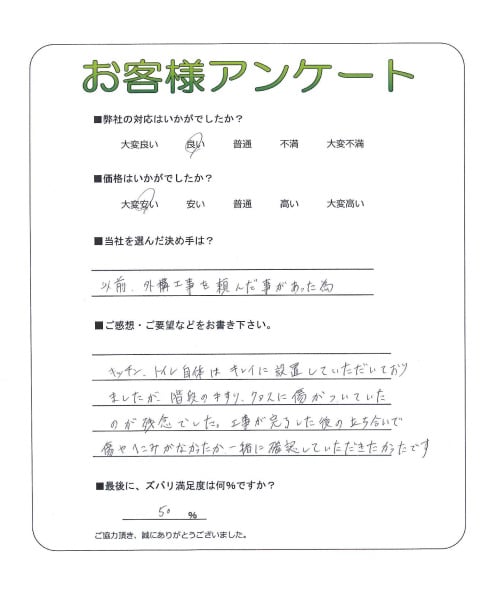 お客様アンケート
■弊社の対応はいかがでしたか？
大変良い 良い 普通 不満 大変不満
■価格はいかがでしたか？
大変安い 安い 普通 高い 大変高い
■当社を選んだ決め手は？
以前、外構工事を頼んだ事があった為
■ご感想・ご要望などをお書き下さい。
キッチン、トイレ自体はキレイに設置していただいており
ましたが、階段の手すり、クロスに傷がついていた
のが残念でした。工事が完了した後の立ち合いで
傷やへこみがなかったか一緒に確認していただきたかったです
■最後に、ズバリ満足度は何％ですか？
50 ％
ご協力頂き、誠にありがとうございました。